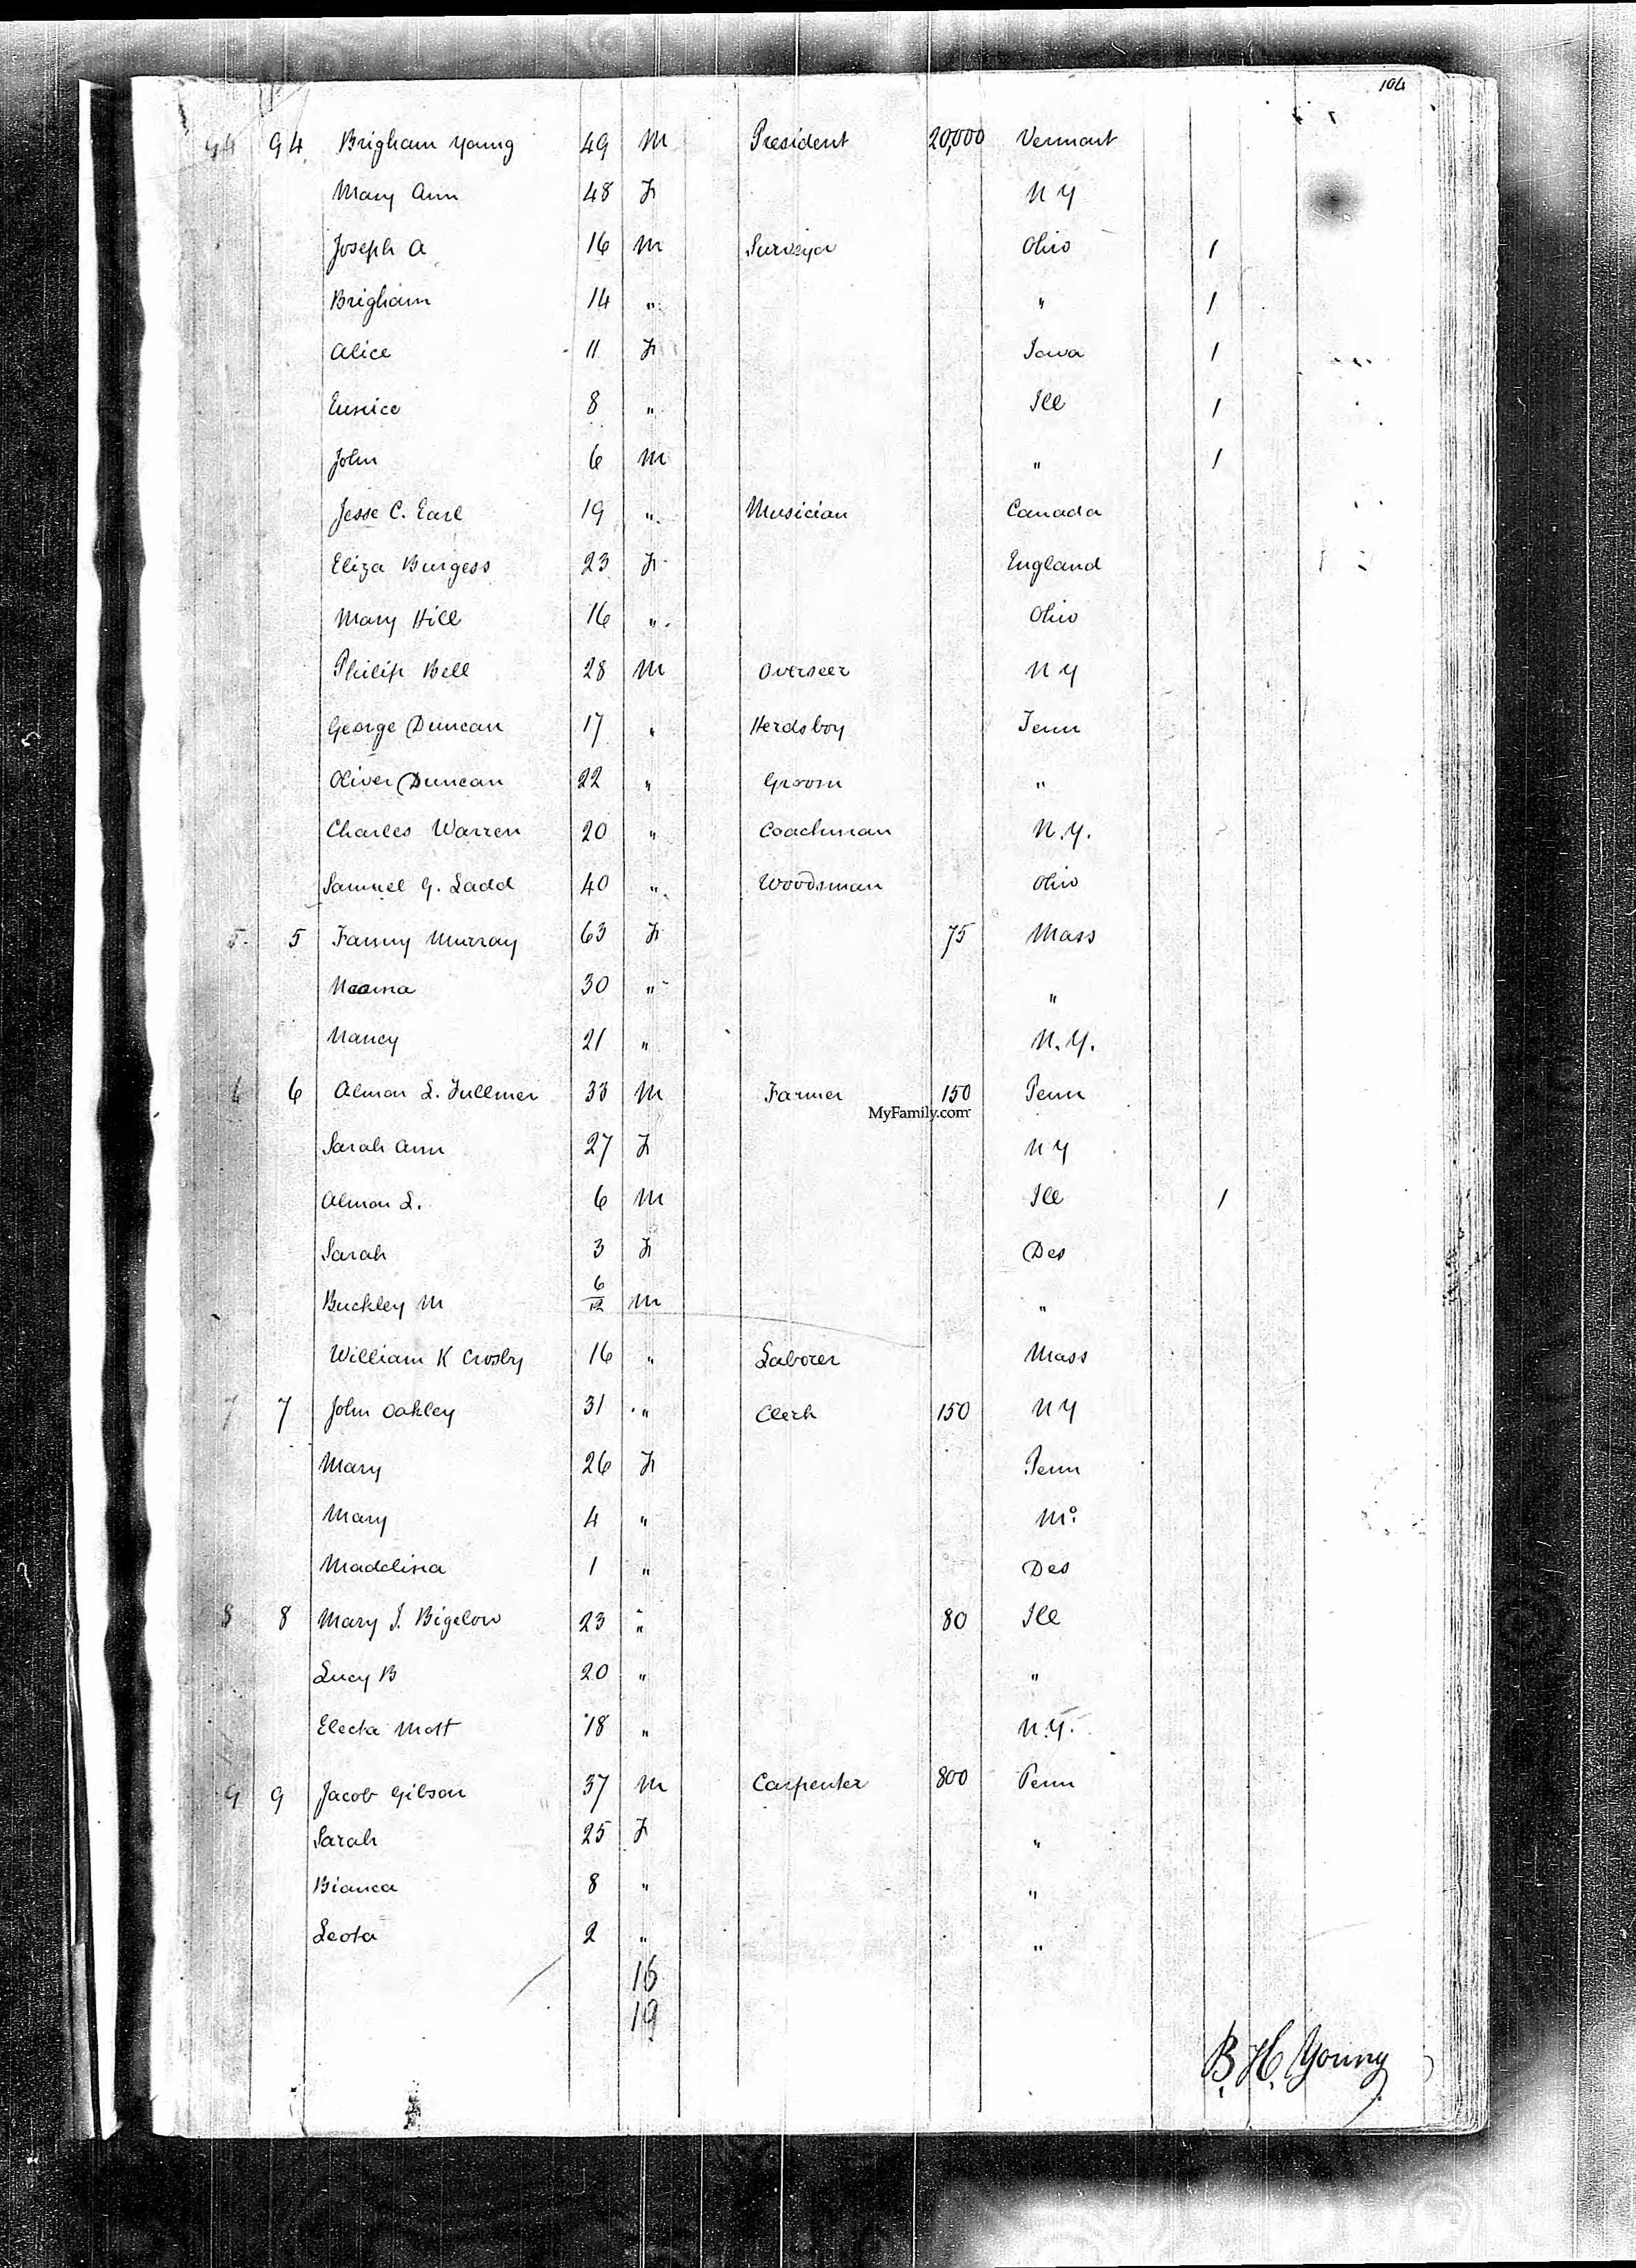 104
94 94 Brigham Young 49 M President 20,000 Vermont
Mary Ann 48 F N Y
Joseph A 16 M Surveyor Ohio 1
Brigham 14 " " 1
Alice 11 F Iowa 1
Eunice 8 " Ill 1
John 6 M " 1
Jesse C. Earl 19 " Musician Canada
Eliza Burgess 23 F England
Mary Hill 16 " Ohio
Philip Bell 28 M Overseer N Y
George Duncan 17 " Herdsboy Tenn
Oliver Duncan 22 " Groom "
Charles Warren 20 " Coachman N.Y.
Samuel G. Ladd 40 " Woodsman Ohio
5 5 Fanny Murray 63 F 75 Mass
30 " "
Nancy 21 " N.Y.
6 6 Almon L. Fullmer 33 M Farmer 150 Penn
MyFamily.com
Sarah Ann 27 F N Y
Almon L. 6 M Ill 1
Sarah 3 F Des
Buckley M 6/12 M "
William K Crosby 16 " Laborer Mass
7 7 John Oakley 31 " Clerk 150 N Y
Mary 26 F Penn
Mary 4 " Mo.
Madelina 1 " Des
8 8 Mary J. Bigelow 23 " 80 Ill
Lucy B 20 " "
Electa Mott 18 " N.Y.
9 9 Jacob Gibson 37 M Carpenter 800 Penn
Sarah 25 F "
Bianca 8 " "
Leota 2 " "
16
19
B. H. Young